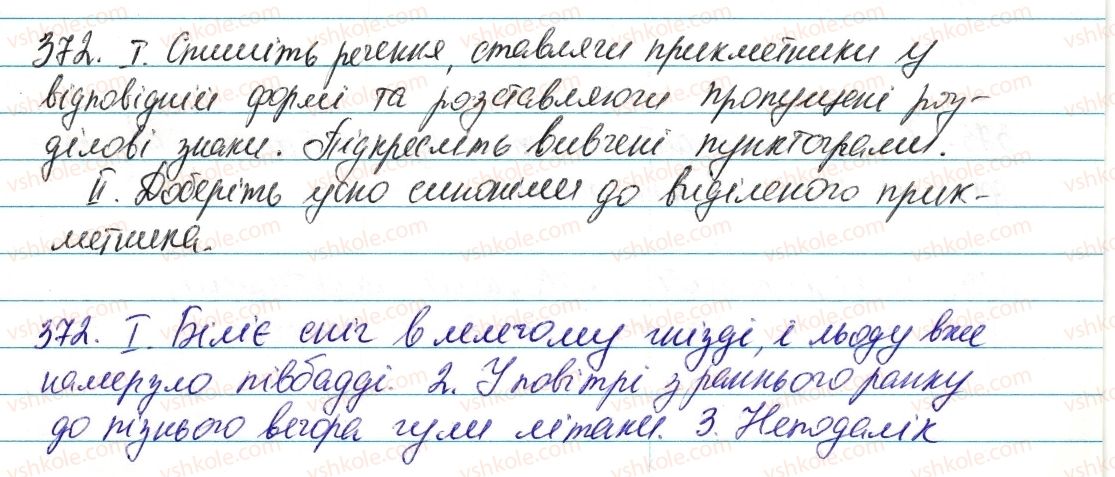 372. I. Спишіть речення, ставлячи прикметники у
відповідній формі та розставляючи пропущені роз-
ділові знаки. Підкресліть вивчені пунктограми.
II. Доберіть усно синоніми до виділеного прик-
метника.
372. I. Біліє сніг в лелечому гнізді, і льоду вже
намерзло півбадді. 2. У повітрі з раннього ранку
до пізнього вечора гули літаки. 3. Неподалік